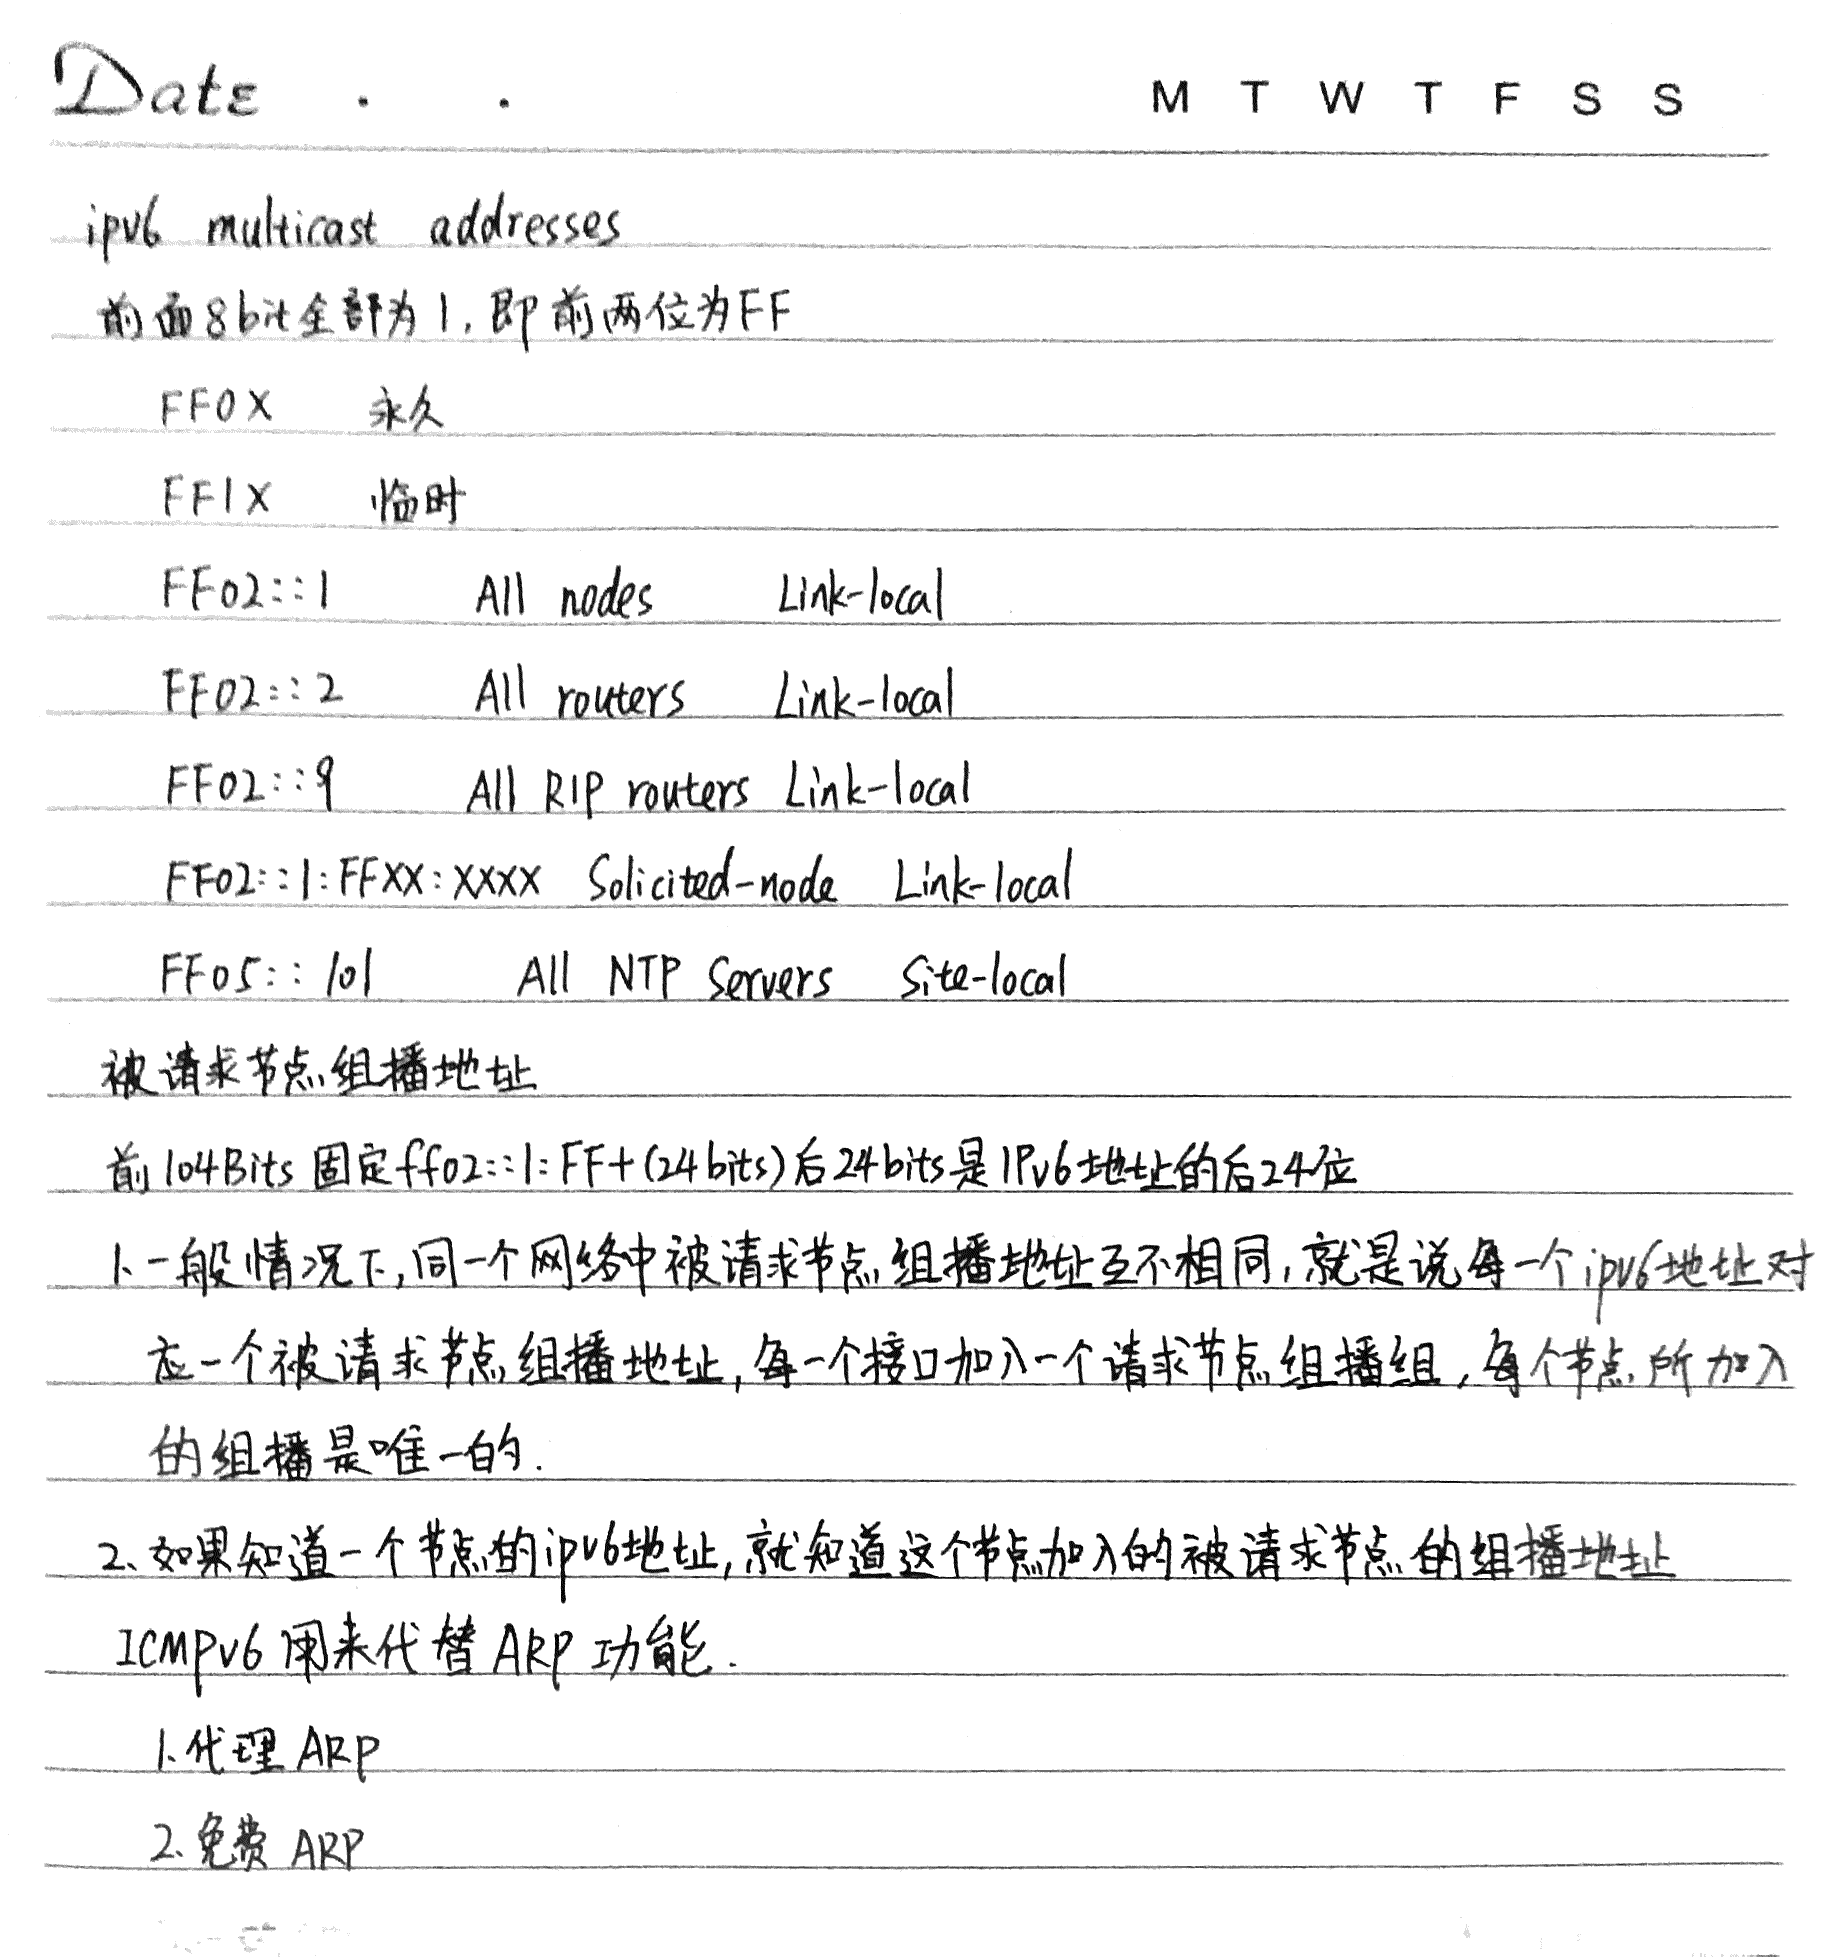 Date . .
M T W T F S S
ipv6 multicast addresses
前面8bit全部为1，即前两位为FF
FF0X 永久
FF1X 临时
FF02::1 All nodes Link-local
FF02::2 All routers Link-local
FF02::9 All RIP routers Link-local
FF02::1:FFXX:XXXX Solicited-node Link-local
FF05::101 All NTP Servers Site-local
被请求节点组播地址
前104Bits固定ff02::1:FF+(24bits)后24bits是IPv6地址的后24位
1、一般情况下,同一个网络中被请求节点组播地址互不相同,就是说每一个ipv6地址对
应一个被请求节点组播地址,每一个接口加入一个请求节点组播组,每个节点所加入
的组播是唯一的.
2、如果知道一个节点的ipv6地址,就知道这个节点加入的被请求节点的组播地址
ICMPv6用来代替ARP功能.
1、代理ARP
2、免费ARP